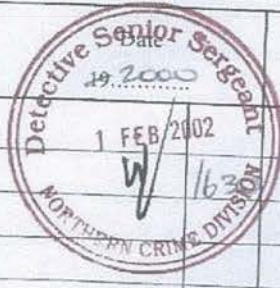 Detective Senior Sergeant
Date
19 2000
1 FEB 2002
NORTHERN CRIME DIVISION